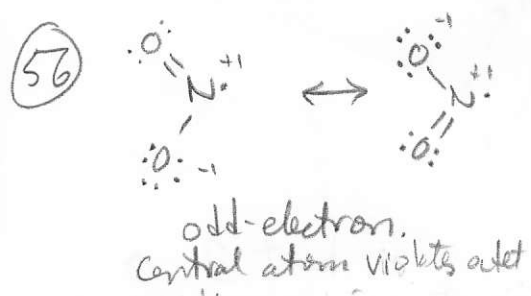 56
O N +1 ↔ O -1 N +1
O -1 O
odd-electron.
Central atom violates octet